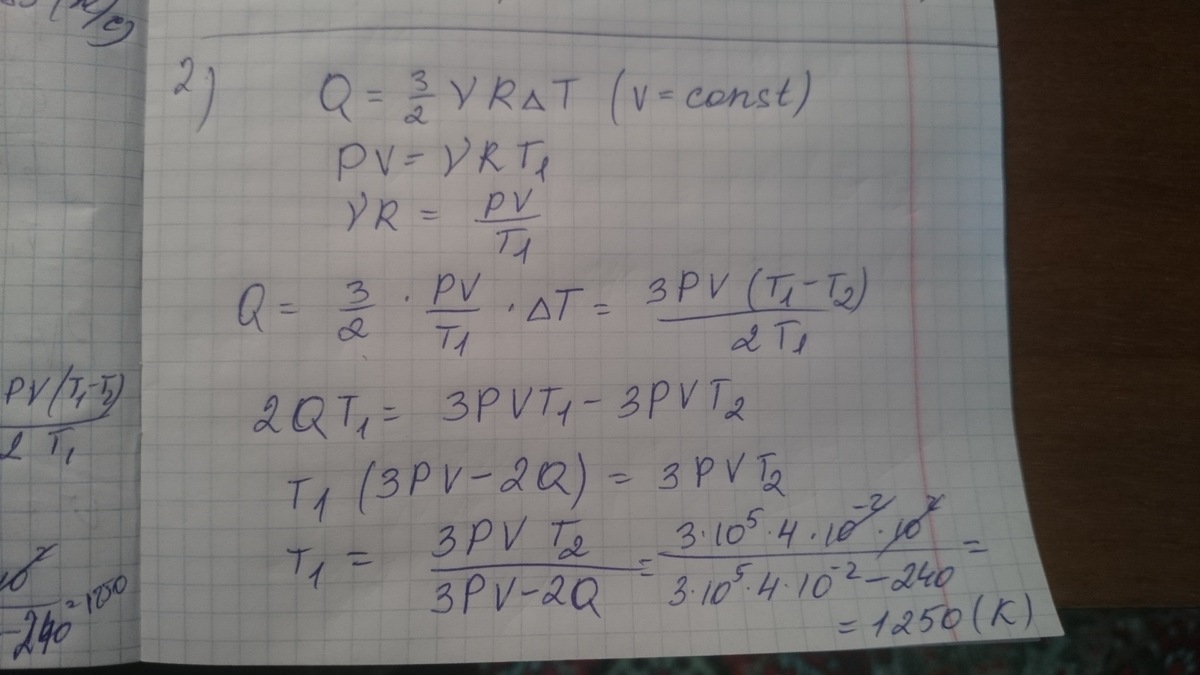 2) Q = 3/2 νRΔT (V = const)
PV = νRT₁
νR = PV/T₁
Q = 3/2 · PV/T₁ · ΔT = 3PV(T₁-T₂)/2T₁
2QT₁ = 3PVT₁ - 3PVT₂
T₁ (3PV - 2Q) = 3PVT₂
T₁ = 3PVT₂/3PV-2Q = 3·10⁵·4·10⁻²·10²/3·10⁵·4·10⁻²-240 =
= 1250 (K)
PV(T₁-T₂)
2 T₁
-240